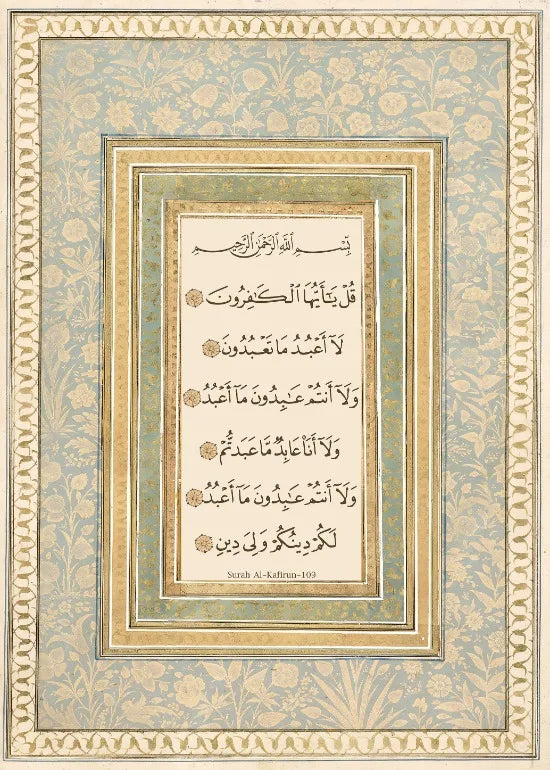 بِسْمِ ٱللَّهِ ٱلرَّحْمَٰنِ ٱلرَّحِيمِ
قُلْ يَـٰٓأَيُّهَا ٱلْكَـٰفِرُونَ
لَآ أَعْبُدُ مَا تَعْبُدُونَ
وَلَآ أَنتُمْ عَـٰبِدُونَ مَآ أَعْبُدُ
وَلَآ أَنَا۠ عَابِدٌ مَّا عَبَدتُّمْ
وَلَآ أَنتُمْ عَـٰبِدُونَ مَآ أَعْبُدُ
لَكُمْ دِينُكُمْ وَلِىَ دِينِ
Surah Al-Kafirun-109